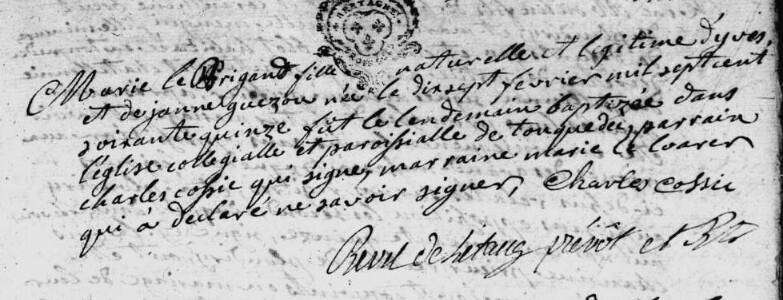 BRETAGNE
Marie le Brigand fille naturelle et legitime d'yves,
et de janne guezou née le dixsept février mil sept cent
soixante quinze fut le lendemain baptizée dans
l'église collegialle et paroissialle de tonquedec, parrain
charles cossic qui signe, marraine marie le
qui à declaré ne savoir signer, Charles cossic
prévôt et